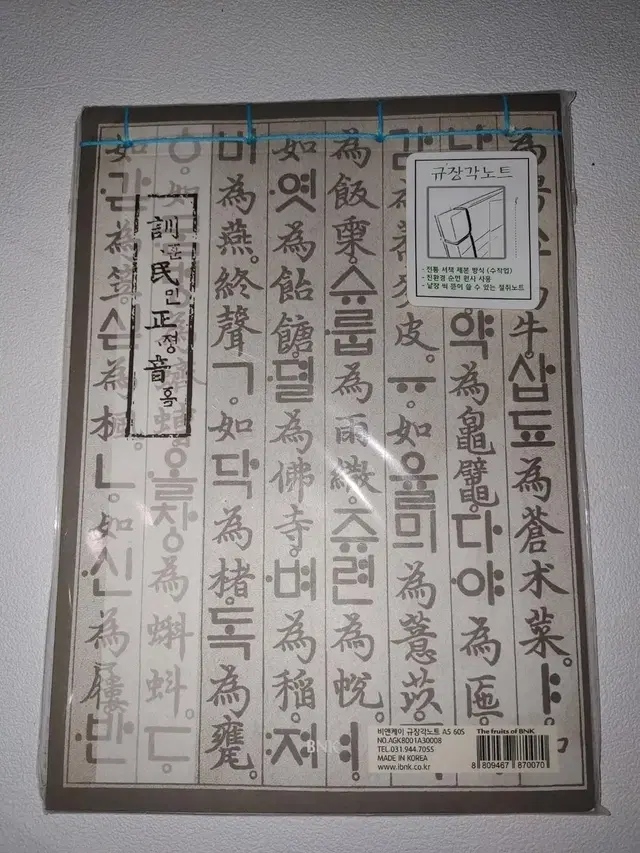 為 쇼為牛。삽됴為蒼朮菜。ㅑ。
약為 鼊。다야為匜。
감為 麥皮。ㅠ。如율믜為薏苡。
為飯 슈룹為雨繖쥬련為帨。
如엿為飴餹뎔為佛寺。벼為稻。져
비為燕。終聲ㄱ。如닥為楮。독為甕。
ㆁ。如 蠐螬올창為蝌蚪。ㄷ。
如갇為笠。싣為楓。ㄴ。如신為屨。반
訓훈民민正정音흠
규장각노트
- 전통 서책 제본 방식 (수작업)
- 친환경 순면 원사 사용
- 낱장 씩 뜯어 쓸 수 있는 절취노트
BNK
비앤케이 규장각노트 A5 60S
NO.AGKB001A30008
TEL.031.944.7055
MADE IN KOREA
www.ibnk.co.kr
The fruits of BNK
8 809467 870070